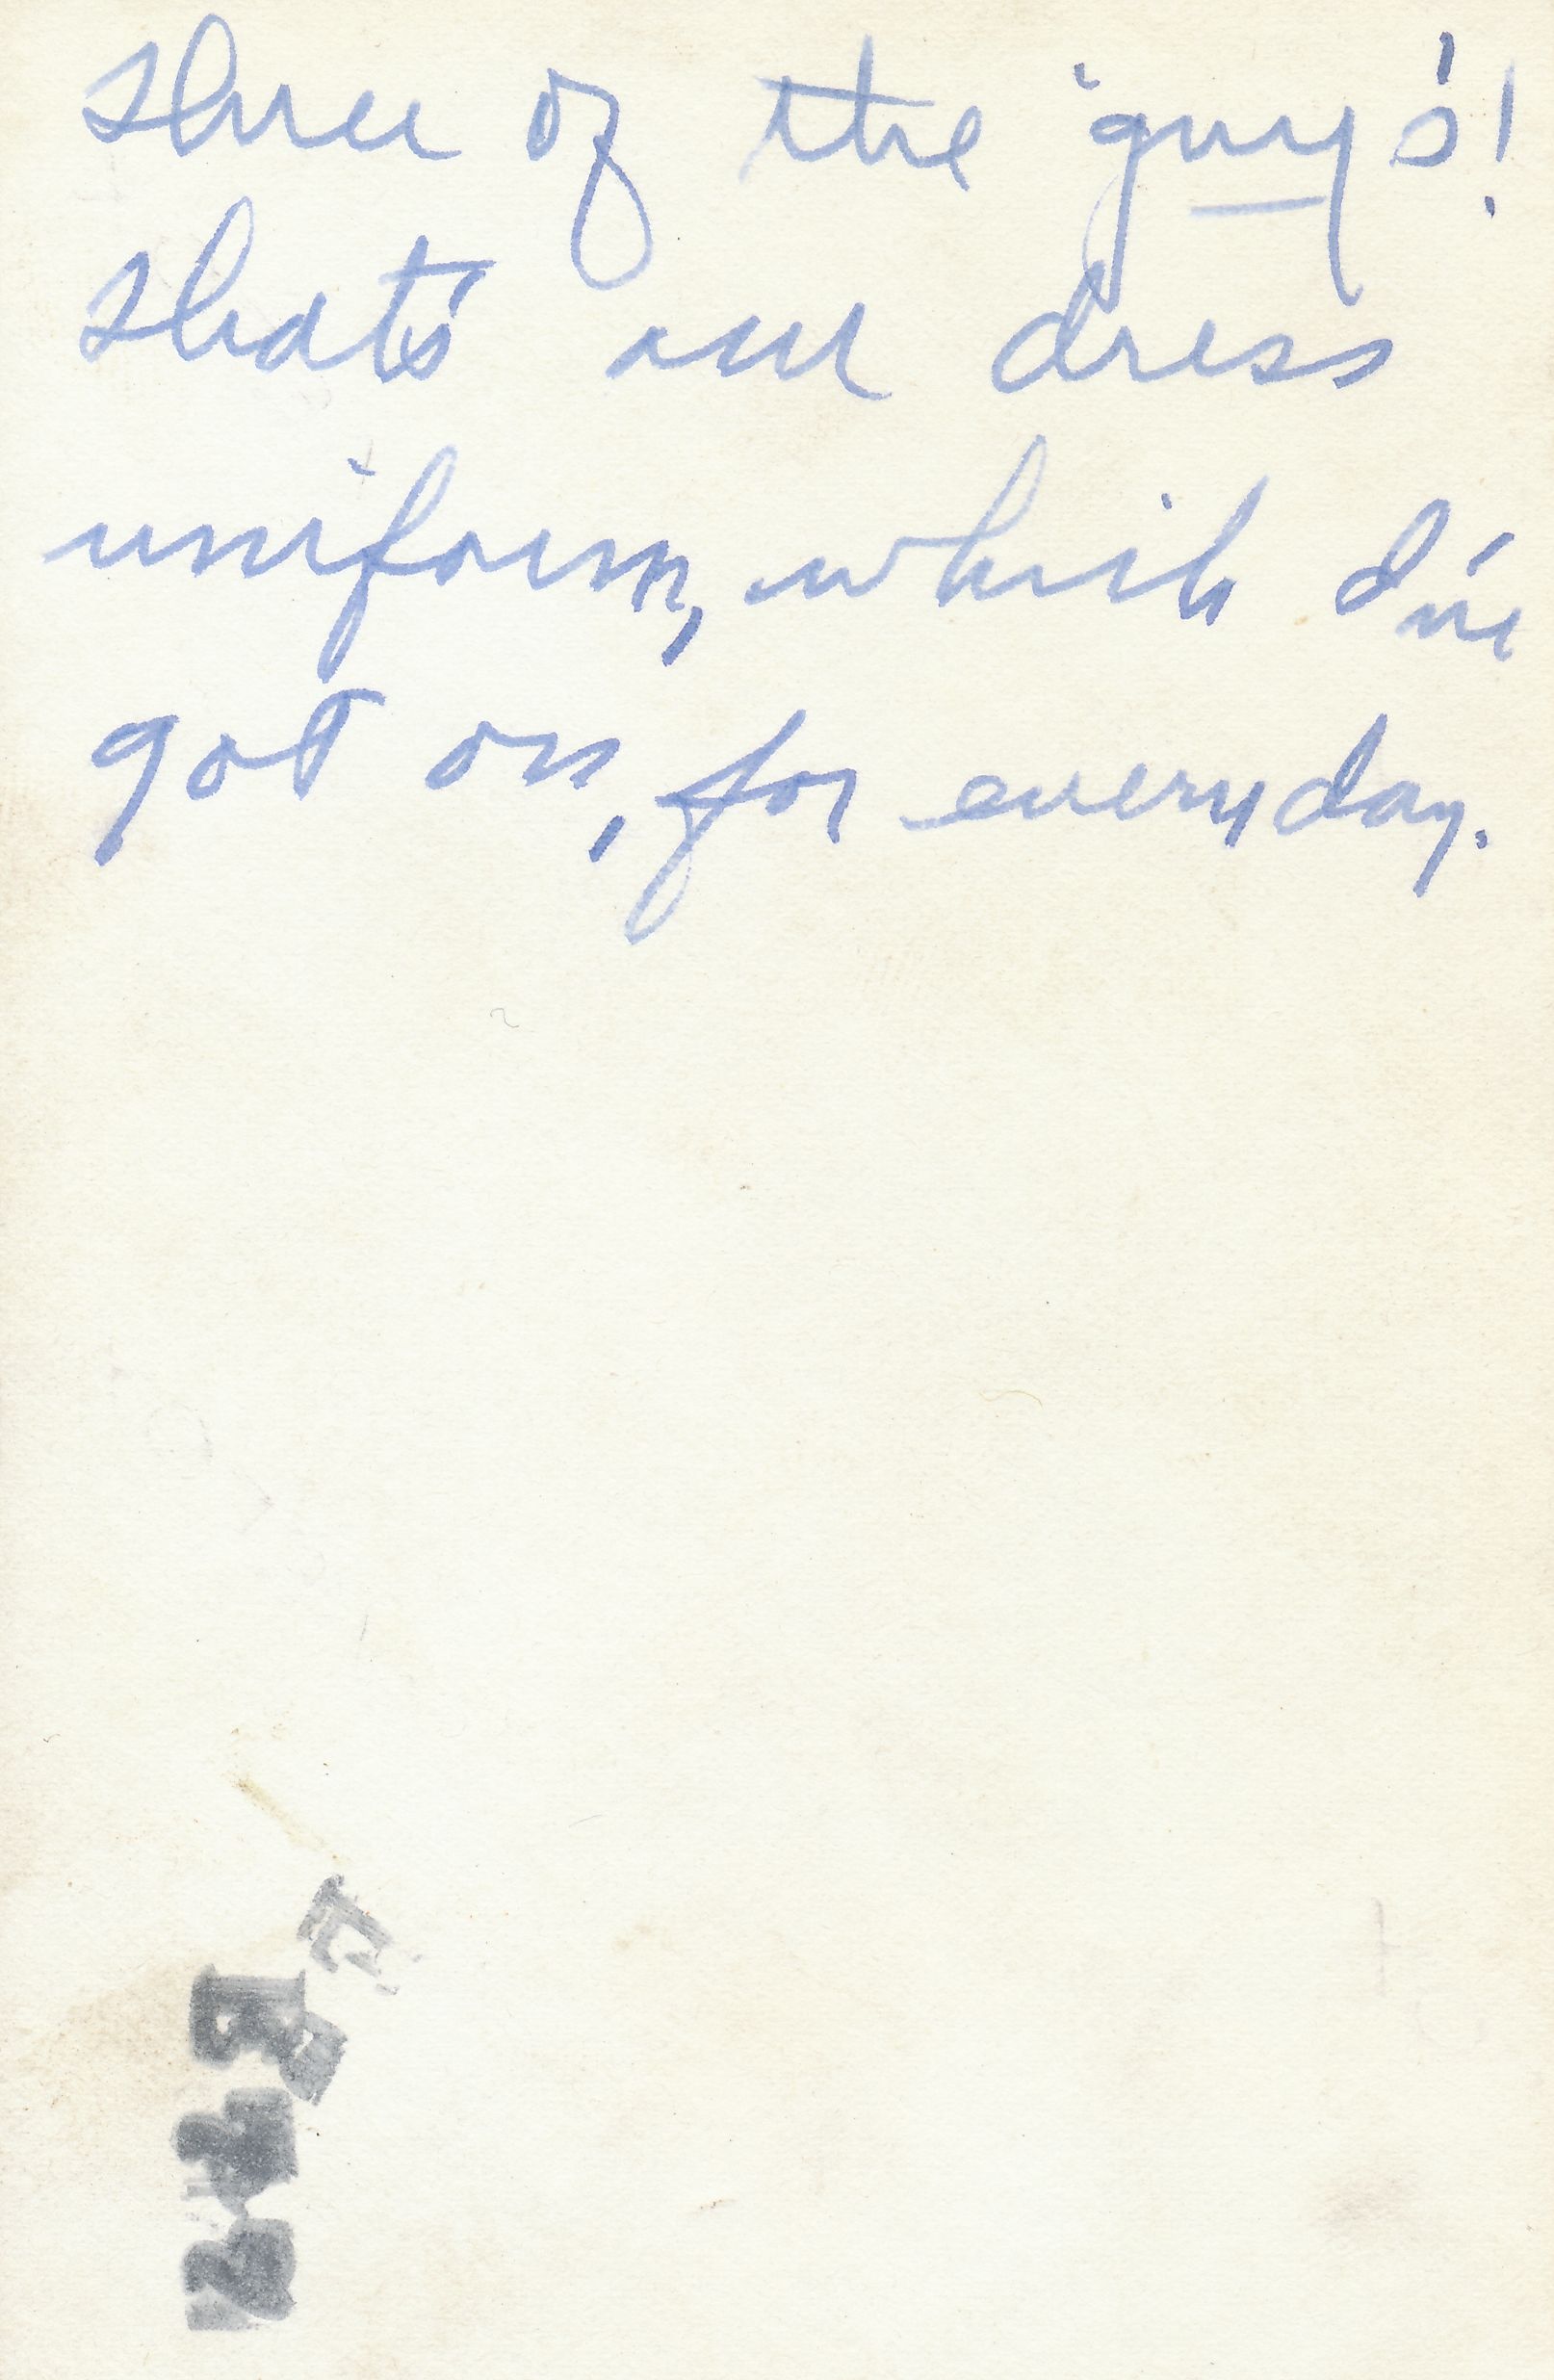 Three of the 'guys'!
That's our dress
uniform, which I've
got on, for everyday.